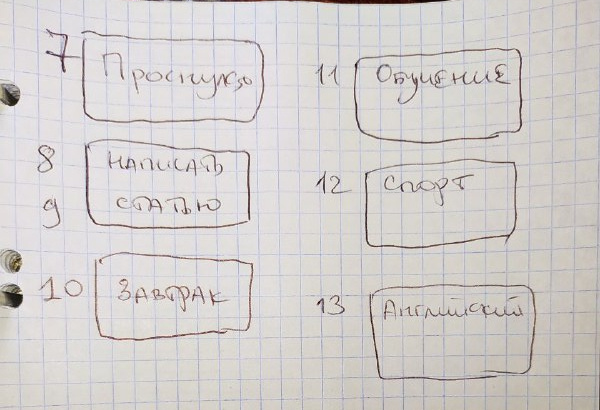 7 Проснулся
8 НАПИСАТЬ
9 СТАТЬЮ
10 ЗАВТРАК
11 ОБУЧЕНИЕ
12 СПОРТ
13 Английский